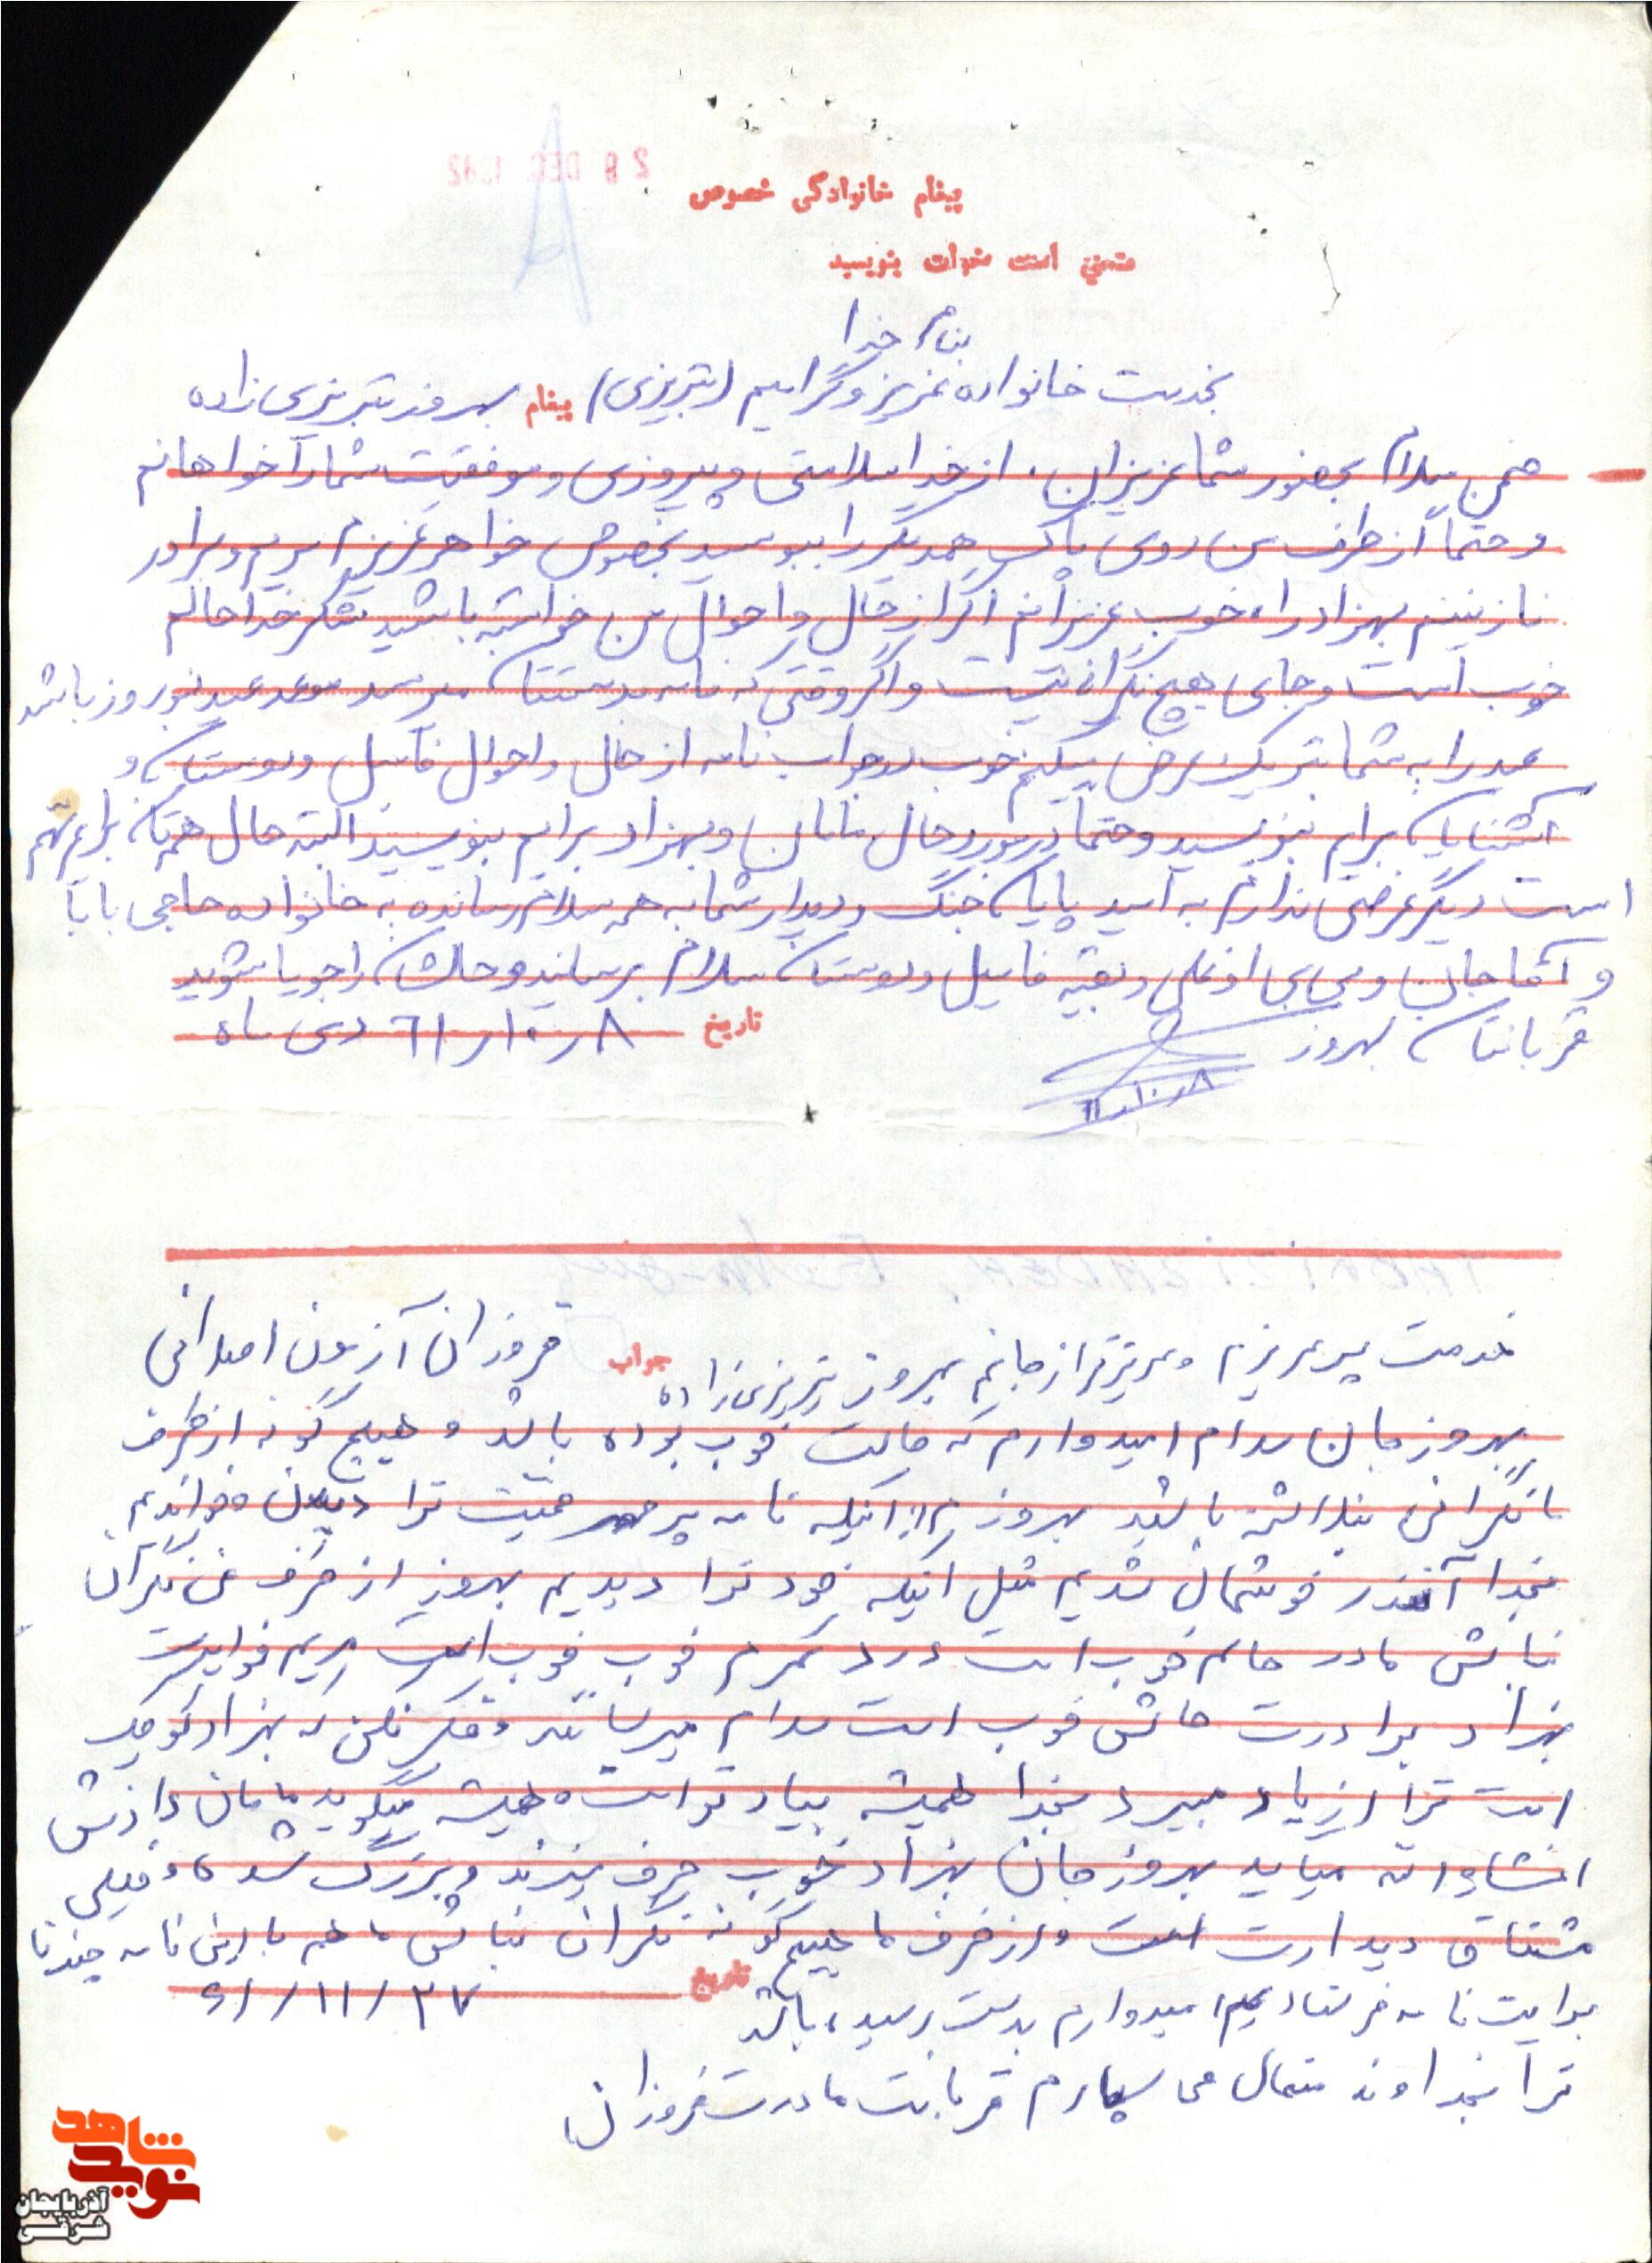 پیغام خانوادگی خصوصی
متمنی است خوانا بنویسید
بنام خدا
بخدمت خانواده عزیز و گرامیم (تبریزی) پیغام بهروز تبریزی زاده
ضمن سلام بحضور شما عزیزان. از خدا سلامتی و پیروزی و موفقیت شما را خواهانم
و حتماً از طرف من روی پاک همدیگر را ببوسید بخصوص خواهر عزیزم مریم و برادر
نازنینم بهزاد را، خوب عزیزانم اگر از حال و احوال من خواسته باشید بشکر خدا حالم
خوب است و جای هیچ نگرانی نیست و اگر وقتی که نامه بدستتان میرسد موعد عید نوروز باشد
عید را به شما تبریک عرض میکنم خوب در جواب نامه از حال و احوال فامیل و دوستان و
آشنایان برایم بنویسید و حتماً در مورد حال مامان و بهزاد برایم بنویسید البته حال همه‌تان برایم مهم
است دیگر عرضی ندارم به امید پایان جنگ و دیدار شما به همه سلام رسانده به خانواده حاجی بابا
و آقا جان و بی بی اوغلی و بقیه فامیل و دوستان سلام برسانید و حالشان را جویا شوید
قربانتان بهروز تاریخ ۸ر۱۰ر۶۱ دی ماه
۸ر۱۰ر۶۱
خدمت پسر عزیزم و عزیزتر از جانم بهروز تبریزی زاده جواب فروزان آزمون اصلانی
بهروز جان سلام امیدوارم که حالت خوب بوده باشد و هیچ گونه از طرف
ما نگرانی نداشته باشید بهروزم از اینکه نامه پر محبتت ترا دیدن و خواندیم
بخدا آنقدر خوشحال شدیم مثل اینکه خود ترا دیدیم بهروز از طرف من نگران
نباش مادر حالم خوب است درد کمرم خوب خوب است مریم خواهرت
بهزاد برادرت حالش خوب است سلام میرسانند و فکر نکن که بهزاد کوچک
است ترا از یاد میبرد بخدا همیشه بیاد تو است و همیشه میگوید مامان داداش
انشاءاله میاید بهروز جان بهزاد خوب حرف میزند و بزرگ شده و خیلی
مشتاق دیدارت است و از طرف ما هیچ گونه نگران نباش ما هم با این نامه چند تا
برایت نامه فرستادیم امیدوارم بدست رسیده باشد تاریخ ۶۱/۱۱/۲۷
ترا بخداوند متعال می سپارم قربانت مادرت فروزان
نوید شاهد
آذربایجان شرقی